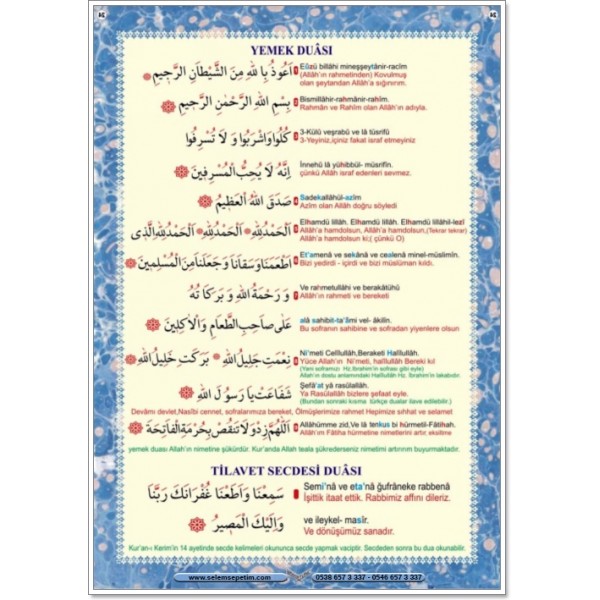 YEMEK DUÂSI
اَعُوذُ بِا للهِ مِنَ الشَّيْطَانِ الرَّجِيمِ
Eûzü billâhi mineşşeytânir-racîm
(Allâh'ın rahmetinden) Kovulmuş
olan şeytandan Allâh'a sığınırım.
بِسْمِ اللهِ الرَّحْمٰنِ الرَّحِيمِ
Bismillâhir-rahmânir-rahîm.
Rahmân ve Rahîm olan Allâh'ın adıyla.
كُلُوا وَاشْرَبُوا وَ لَا تُسْرِفُوا
3-Külû veşrabû ve lâ tüsrifû
3-Yeyiniz,içiniz fakat israf etmeyiniz
اِنَّهُ لَا يُحِبُّ الْمُسْرِفِينَ
İnnehû lâ yühibbül- müsrifîn.
çünkü Allâh israf edenleri sevmez.
صَدَقَ اللهُ الْعَظِيمُ
Sadekallâhül-azîm
Azîm olan Allâh doğru söyledi
اَلْحَمْدُ لِلّٰهِ اَلْحَمْدُ لِلّٰهِ اَلْحَمْدُ لِلّٰهِ الَّذِى
Elhamdü lillâh. Elhamdü lillâh. Elhamdü lillâhil-lezî
Allâh'a hamdolsun, Allâh'a hamdolsun,(Tekrar tekrar)
Allâh'a hamdolsun ki;( çünkü O)
اَطْعَمَنَا وَسَقَانَا وَجَعَلَنَا مِنَ الْمُسْلِمِينَ
Et'amenâ ve sekânâ ve cealenâ minel-müslimîn.
Bizi yedirdi - içirdi ve bizi müslüman kıldı.
وَ رَحْمَةُ اللهِ وَ بَرَكَاتُهُ
Ve rahmetullâhi ve berakâtühû
Allâh'ın rahmeti ve bereketi
عَلٰى صَاحِبِ الطَّعَامِ وَالْاٰكِلِينَ
alâ sahibit-ta'âmi vel- âkilîn.
Bu sofranın sahibine ve sofradan yiyenlere olsun
نِعْمَتِ جَلِيلُ اللهِ بَرَكَتِ خَلِيلُ اللهِ
Ni'meti Celîlullâh,Beraketi Halîlullâh.
Yüce Allah'ın Ni'meti, halîlullâh Bereki kıl
(Yani soframızı Hz.İbrahim'in sofrası gibi eyle)
Allah'ın dostu anlamındaki Halîlullâh Hz. İbrahim'in lakabıdır.
شَفَاعَتْ يَا رَسُولَ اللهِ
Şefâ'at yâ rasûlallâh.
Ya Rasûlallâh bizlere şefaat eyle.
(Bundan sonraki kısma türkçe dualar ilave edilebilir.)
Devâmı devlet,Nasîbi cennet, sofralarımıza bereket, Ölmüşlerimize rahmet Hepimize sıhhat ve selamet
اَللّٰهُمَّ زِدْ وَلَا تَنْقُصْ بِحُرْمَةِ الْفَاتِحَةِ
Allâhümme zid,Ve lâ tenkus bi hürmetil-Fâtihah.
Allâh'ım Fâtiha hürmetine nimetlerini artır, eksiltme
yemek duası Allah'ın nimetine şükürdür. Kur'anda Allah teala şükrederseniz nimetimi artırırım buyurmaktadır.
TİLAVET SECDESİ DUÂSI
سَمِعْنَا وَاَطَعْنَا غُفْرَانَكَ رَبَّنَا
Semi'nâ ve eta'nâ ğufrâneke rabbenâ
İşittik itaat ettik. Rabbimiz affını dileriz.
وَاِلَيْكَ الْمَصِيرُ
ve ileykel- masîr.
Ve dönüşümüz sanadır.
Kur'an-ı Kerim'in 14 ayetinde secde kelimeleri okununca secde yapmak vaciptir. Secdeden sonra bu dua okunabilir.
www.selemsepetim.com 0538 657 3 337 - 0546 657 3 337